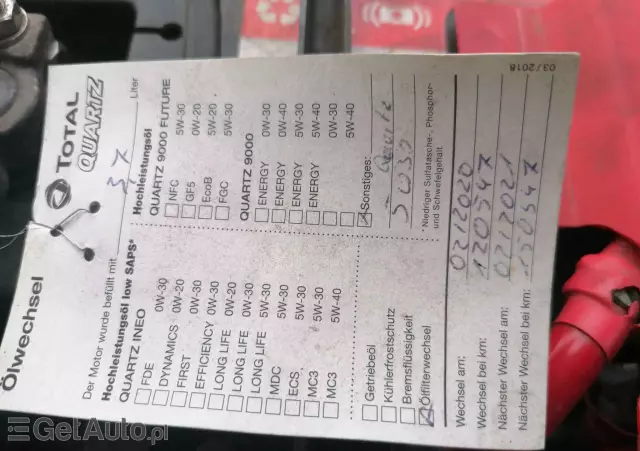 Ölwechsel
TOTAL
QUARTZ
Der Motor wurde befüllt mit 3,7 Liter
Hochleistungsöl low SAPS*
QUARTZ INEO
FDE 0W-30
DYNAMICS 0W-20
FIRST 0W-30
EFFICIENCY 0W-30
LONG LIFE 0W-20
LONG LIFE 0W-30
LONG LIFE 5W-30
MDC 5W-30
ECS 5W-30
MC3 5W-30
MC3 5W-40
Hochleistungsöl
QUARTZ 9000 FUTURE
NFC 5W-30
GF5 0W-20
EcoB 5W-20
FGC 5W-30
QUARTZ 9000
ENERGY 0W-30
ENERGY 0W-40
ENERGY 5W-30
ENERGY 5W-40
0W-30
5W-40
Sonstiges:
5W30
*Niedriger Sulfatasche-, Phosphor-
und Schwefelgehalt.
Getriebeöl
Kühlerfrostschutz
Bremsflüssigkeit
Ölfilterwechsel
Wechsel am: 02/2020
Wechsel bei km: 120547
Nächster Wechsel am: 02/2021
Nächster Wechsel bei km: 150547
03/2018
GetAuto.pl